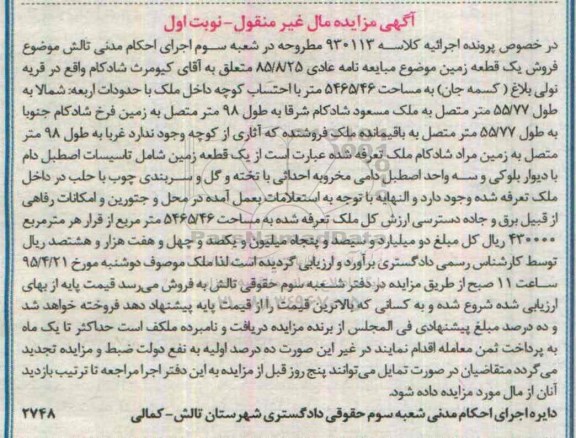 آگهی مزایده مال غیر منقول-نوبت اول
در خصوص پرونده اجرائیه کلاسه ۹۳۰۱۱۳ مطروحه در شعبه سوم اجرای احکام مدنی تالش موضوع
فروش یک قطعه زمین موضوع مبایعه نامه عادی ۸۵/۸/۲۵ متعلق به آقای کیومرث شادکام واقع در قریه
نولی بلاغ ( کسمه جان) به مساحت ۵۴۶۵/۴۶ متر با احتساب کوچه داخل ملک با حدودات اربعه: شمالا به
طول ۵۵/۷۷ متر متصل به ملک مسعود شادکام شرقا به طول ۹۸ متر متصل به زمین فرخ شادکام جنوبا
به طول ۵۵/۷۷ متر متصل به باقیمانده ملک فروشنده که آثاری از کوچه وجود ندارد غربا به طول ۹۸ متر
متصل به زمین مراد شادکام ملک تعرفه شده عبارت است از یک قطعه زمین شامل تاسیسات اصطبل دام
با دیوار بلوکی و سه واحد اصطبل دامی مخروبه احداثی با تخته و گل و سربندی چوب با حلب در داخل
ملک تعرفه شده وجود دارد و النهایه با توجه به استعلامات بعمل آمده در محل و جتورین و امکانات رفاهی
از قبیل برق و جاده دسترسی ارزش کل ملک تعرفه شده به مساحت ۵۴۶۵/۴۶ متر مربع از قرار هر مترمربع
۴۳۰۰۰۰ ریال کل مبلغ دو میلیارد و سیصد و پنجاه میلیون و یکصد و چهل و هفت هزار و هشتصد ریال
توسط کارشناس رسمی دادگستری برآورد و ارزیابی گردیده است لذا ملک موصوف دوشنبه مورخ ۹۵/۴/۲۱
ساعت ۱۱ صبح از طریق مزایده در دفتر شعبه سوم حقوقی تالش به فروش می‌رسد قیمت پایه از بهای
ارزیابی شده شروع شده و به کسانی که بالاترین قیمت را از قیمت پایه پیشنهاد دهد فروخته خواهد شد
و ده درصد مبلغ پیشنهادی فی المجلس از برنده مزایده دریافت و نامبرده مکلف است حداکثر تا یک ماه
به پرداخت ثمن معامله اقدام نمایند در غیر این صورت ده درصد اولیه به نفع دولت ضبط و مزایده تجدید
می‌گردد متقاضیان در صورت تمایل می‌توانند پنج روز قبل از مزایده به این دفتر اجرا مراجعه تا ترتیب بازدید
آنان از مال مورد مزایده داده شود.
دایره اجرای احکام مدنی شعبه سوم حقوقی دادگستری شهرستان تالش- کمالی ۲۷۴۸